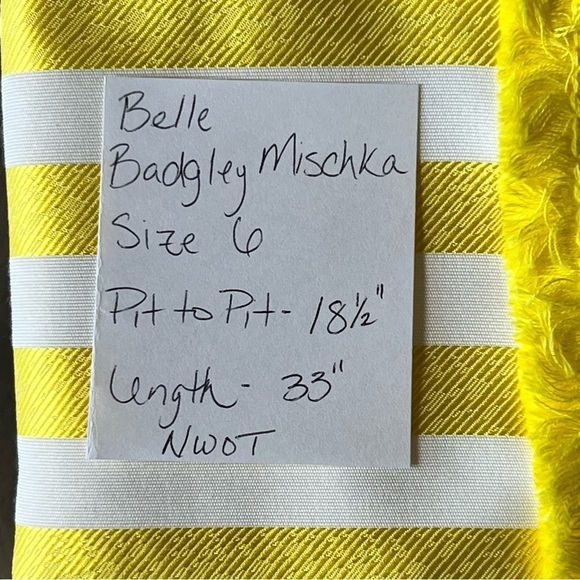 Belle
Badgley Mischka
Size 6
Pit to Pit - 18 1/2"
Length - 33"
NWOT